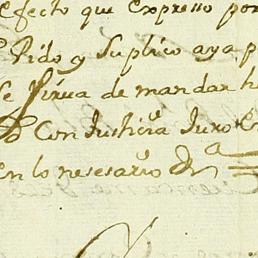 efecto que expresso por
Pido y Suplico aya p
Se Sirua de mandar h
Con Justicia Juro en
en lo nesesario Da